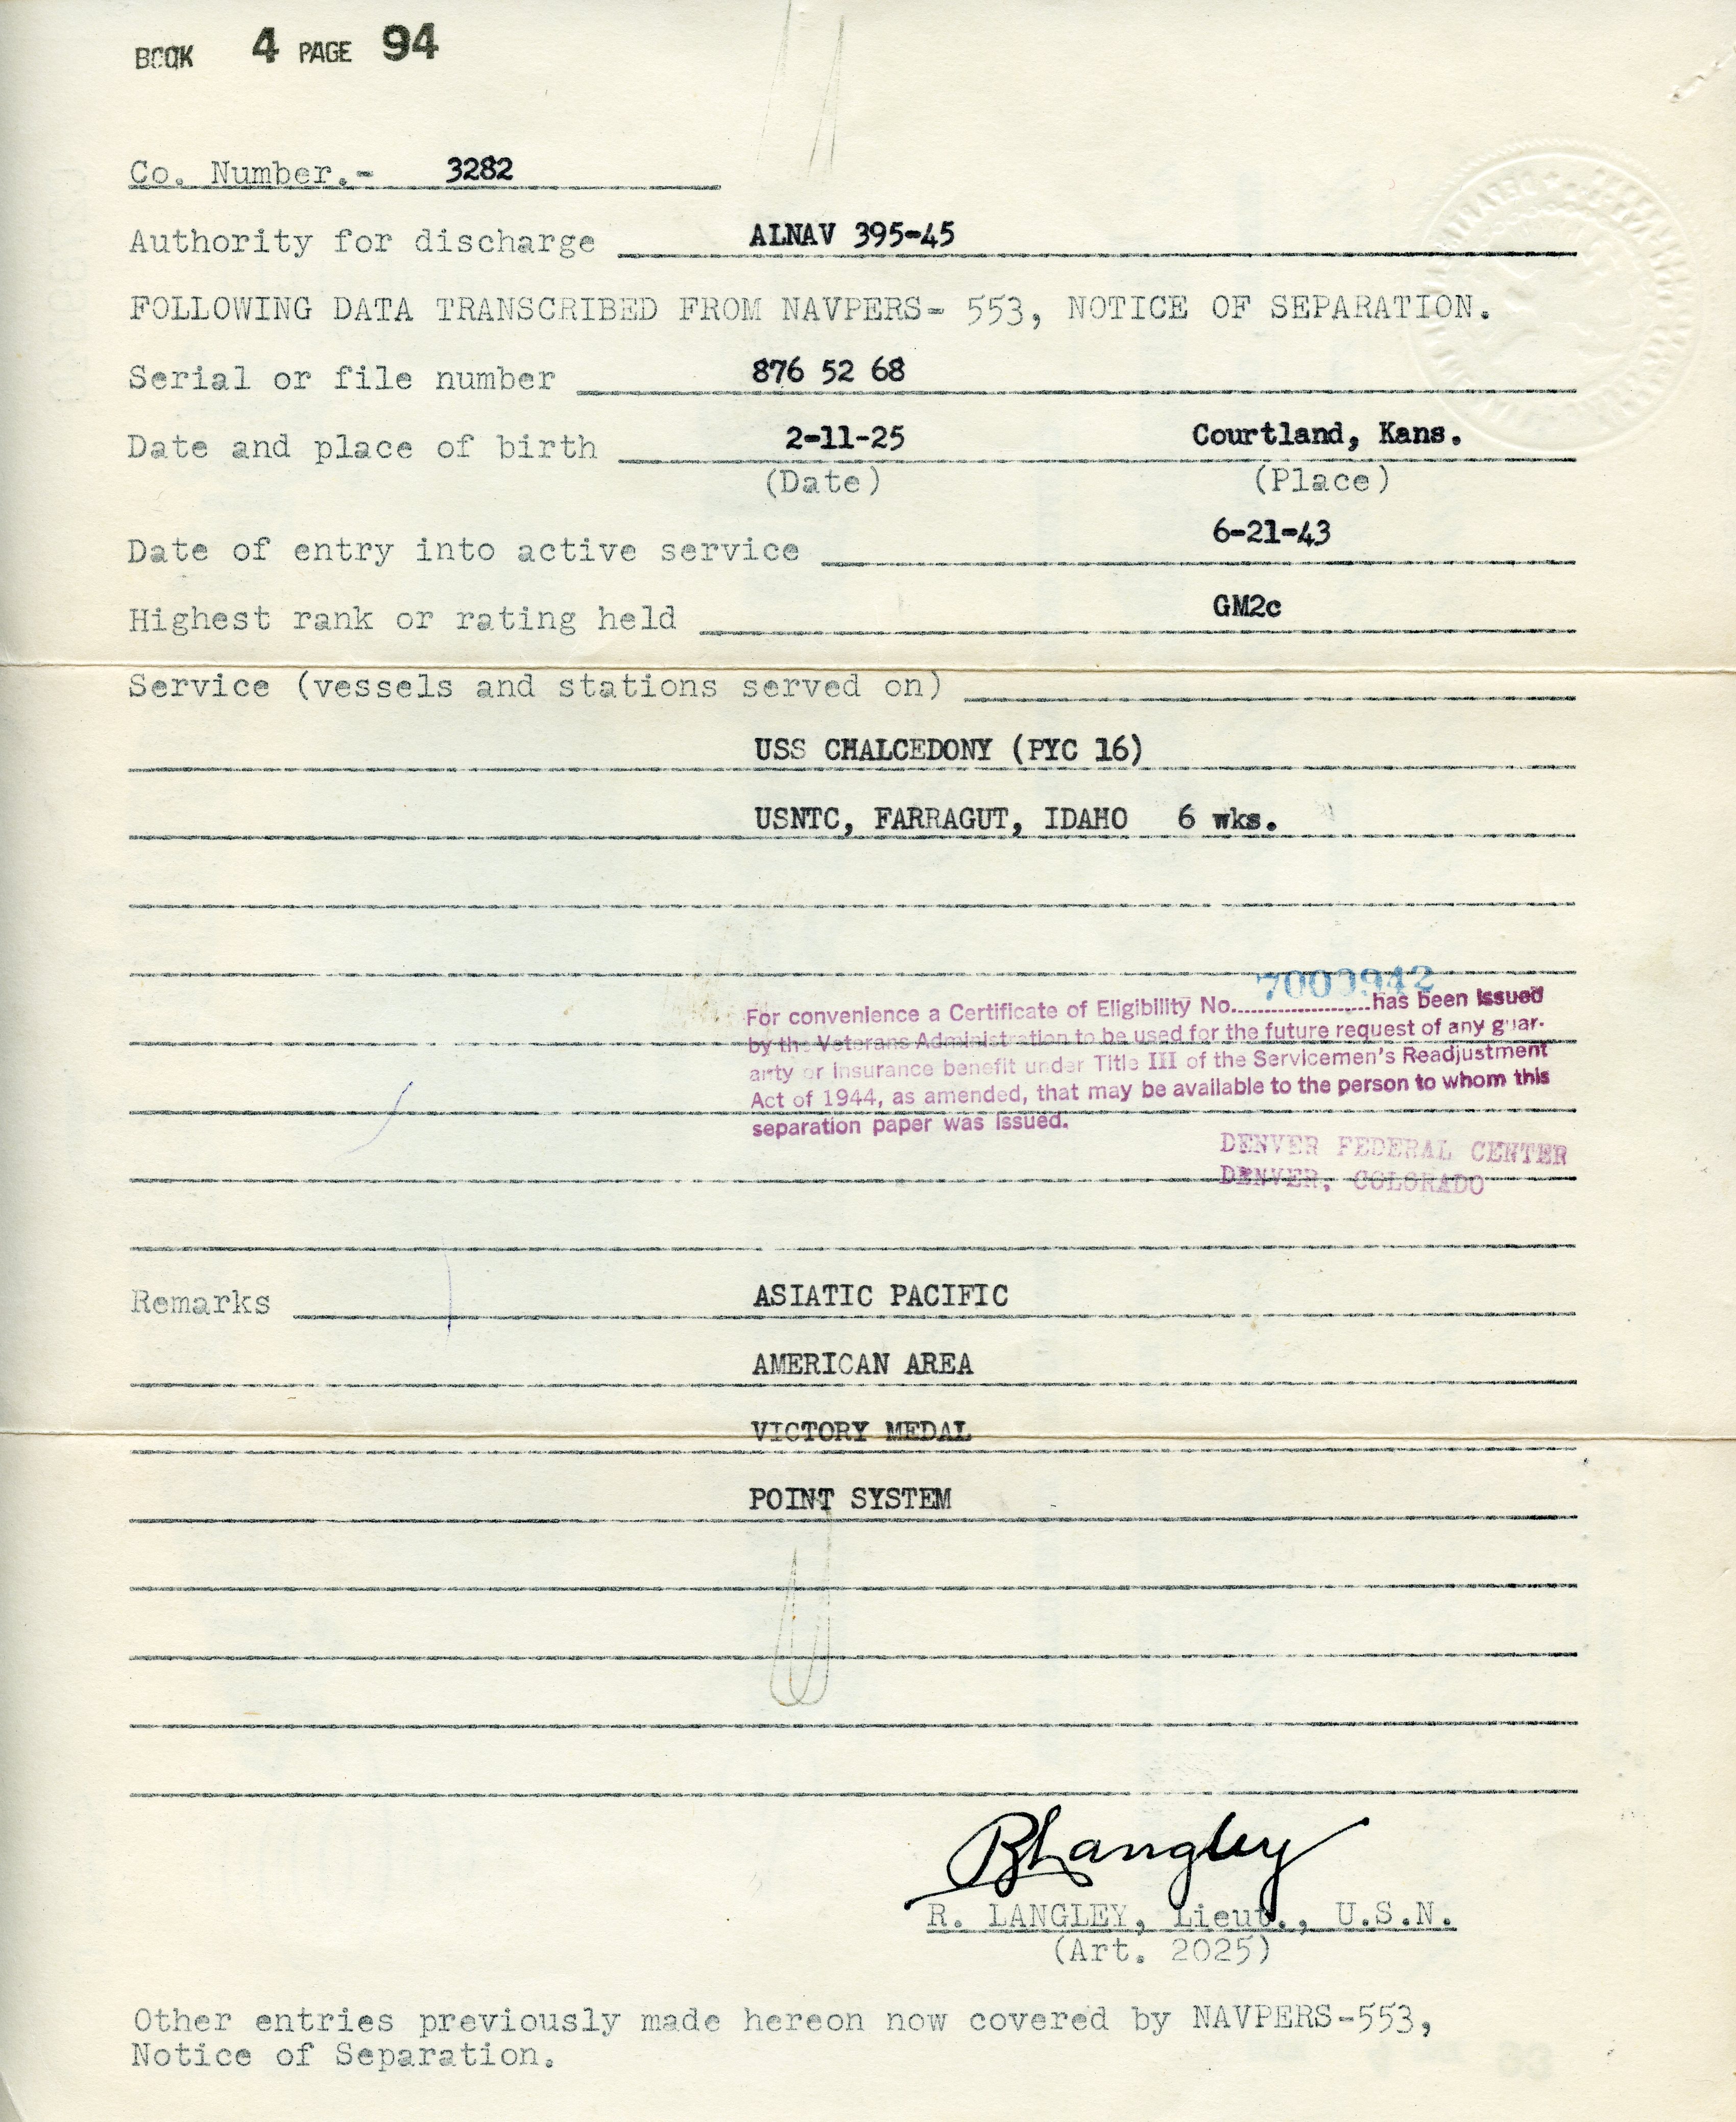 BOOK 4 PAGE 94
Co. Number.- 3282
Authority for discharge ALNAV 395-45
FOLLOWING DATA TRANSCRIBED FROM NAVPERS- 553, NOTICE OF SEPARATION.
Serial or file number 876 52 68
Date and place of birth 2-11-25 Courtland, Kans.
(Date) (Place)
Date of entry into active service 6-21-43
Highest rank or rating held GM2c
Service (vessels and stations served on)
USS CHALCEDONY (PYC 16)
USNTC, FARRAGUT, IDAHO 6 wks.
For convenience a Certificate of Eligibility No. 7000942 has been issued
by the Veterans Administration to be used for the future request of any guar-
anty or insurance benefit under Title III of the Servicemen's Readjustment
Act of 1944, as amended, that may be available to the person to whom this
separation paper was issued.
DENVER FEDERAL CENTER
DENVER, COLORADO
Remarks ASIATIC PACIFIC
AMERICAN AREA
VICTORY MEDAL
POINT SYSTEM
RLangley
R. LANGLEY, Lieut., U.S.N.
(Art. 2025)
Other entries previously made hereon now covered by NAVPERS-553,
Notice of Separation.